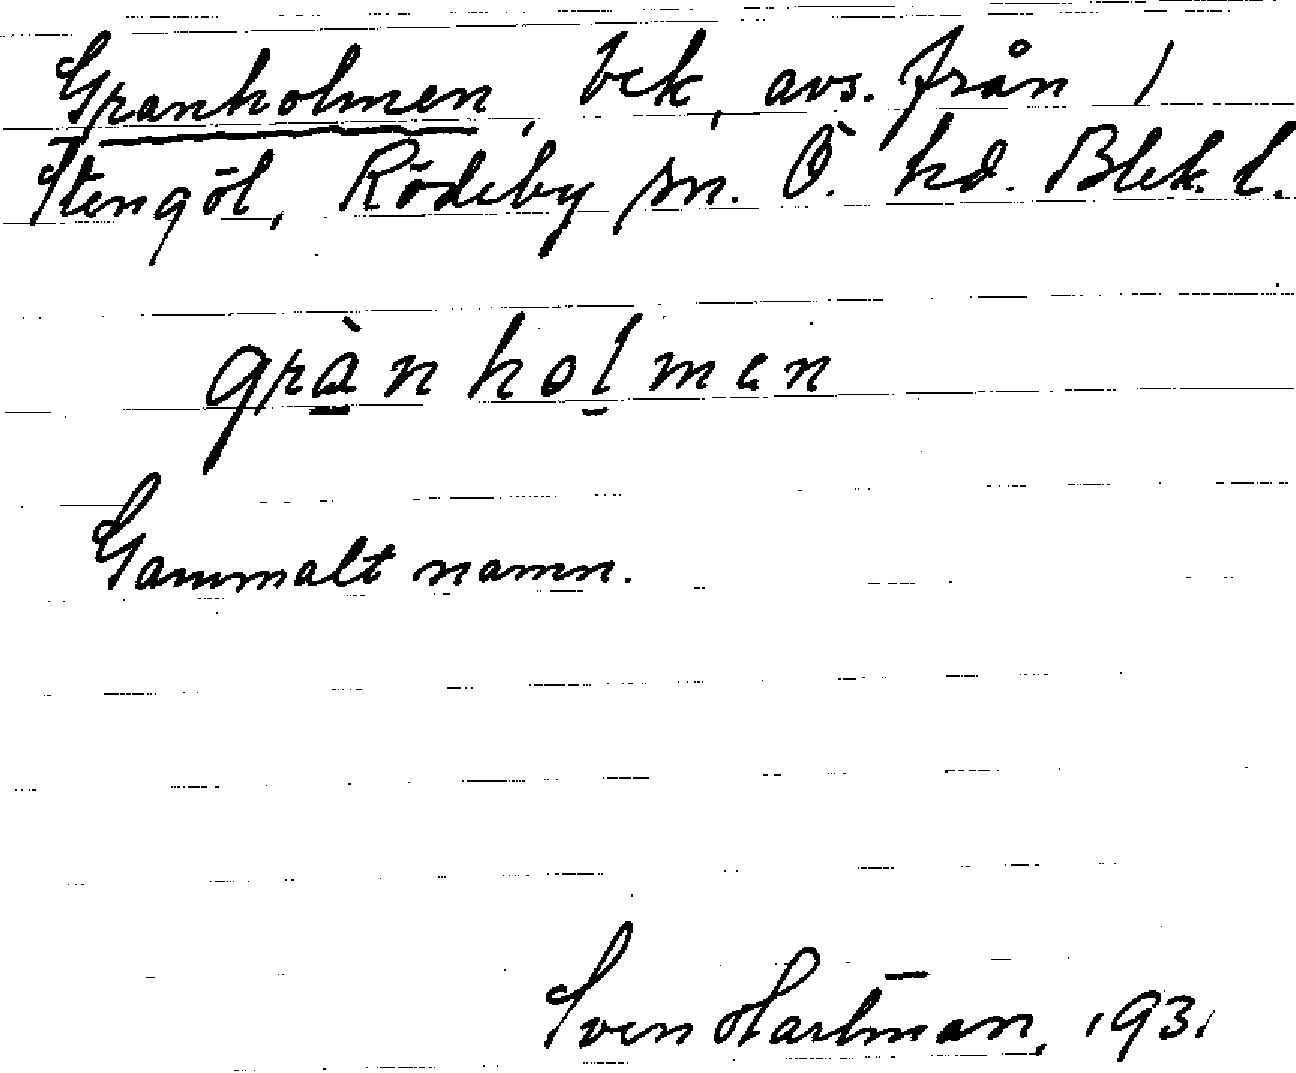 Granholmen, bek, avs. från 1
Stengöl, Rödeby sn. Ö. hd. Blek. l.
grànholmen
Gammalt namn.
Sven Hartman, 1931